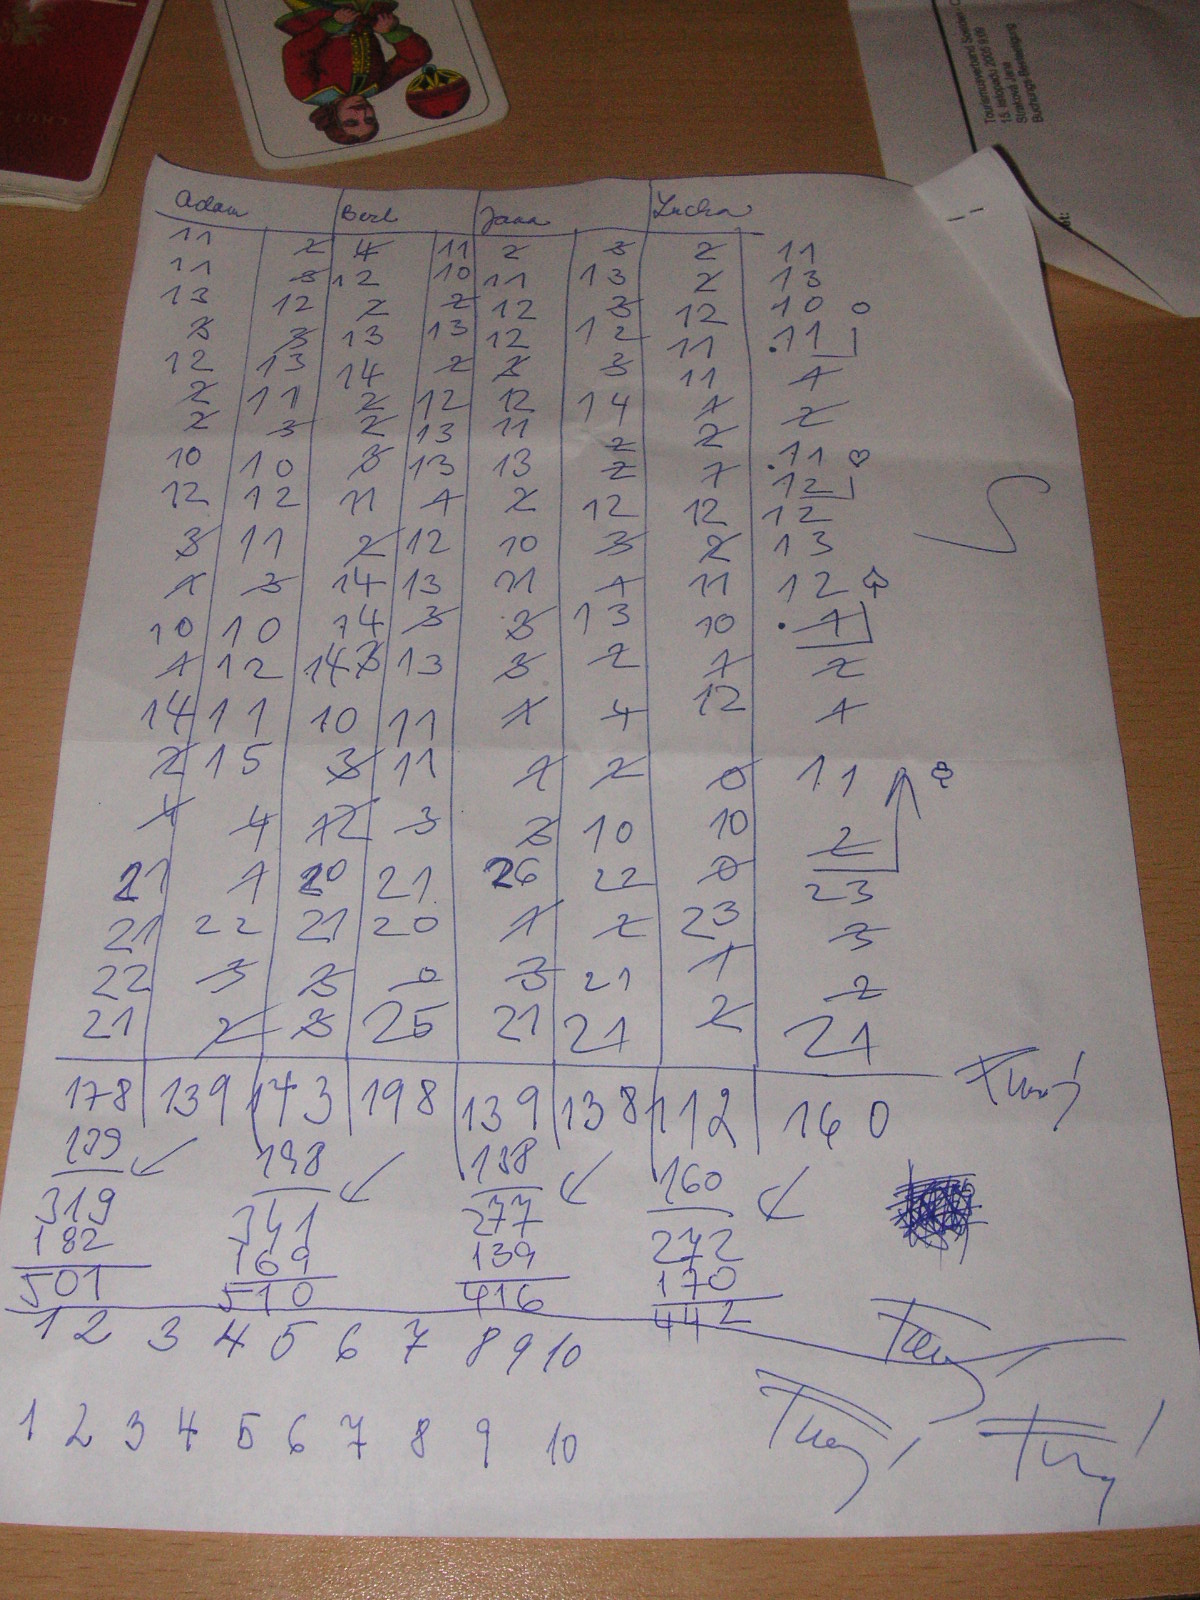 Tourismusverband Soelden
15. listopadu 2005 9:59
Straková Jana
Buchungs-Bestätigung
Adam Bert Jana Lucka
11 2 4 11 2 3 2 11
11 3 12 10 11 13 2 13
13 12 2 2 12 3 12 10
3 3 13 13 12 12 11 11
12 13 14 2 3 3 11 1
2 11 2 12 12 14 1 2
2 3 2 13 11 2 2 11
10 10 3 13 13 2 1 12
12 12 11 1 2 12 12 12
3 11 2 12 10 3 2 13
1 3 14 13 11 1 11 12
10 10 14 3 3 13 10 1
1 12 14 3 13 3 2 1 2
14 11 10 11 1 4 12 1
2 15 3 11 1 2 0 11
1 4 12 3 3 10 10 2
21 1 20 21 26 22 0 23
21 22 21 20 1 2 23 3
22 3 3 0 3 21 1 2
21 2 3 25 21 21 2 21
178 139 143 198 139 138 112 160
139 198 138 160
319 341 277 272
182 169 139 170
501 510 416 442
1 2 3 4 5 6 7 8 9 10
1 2 3 4 5 6 7 8 9 10